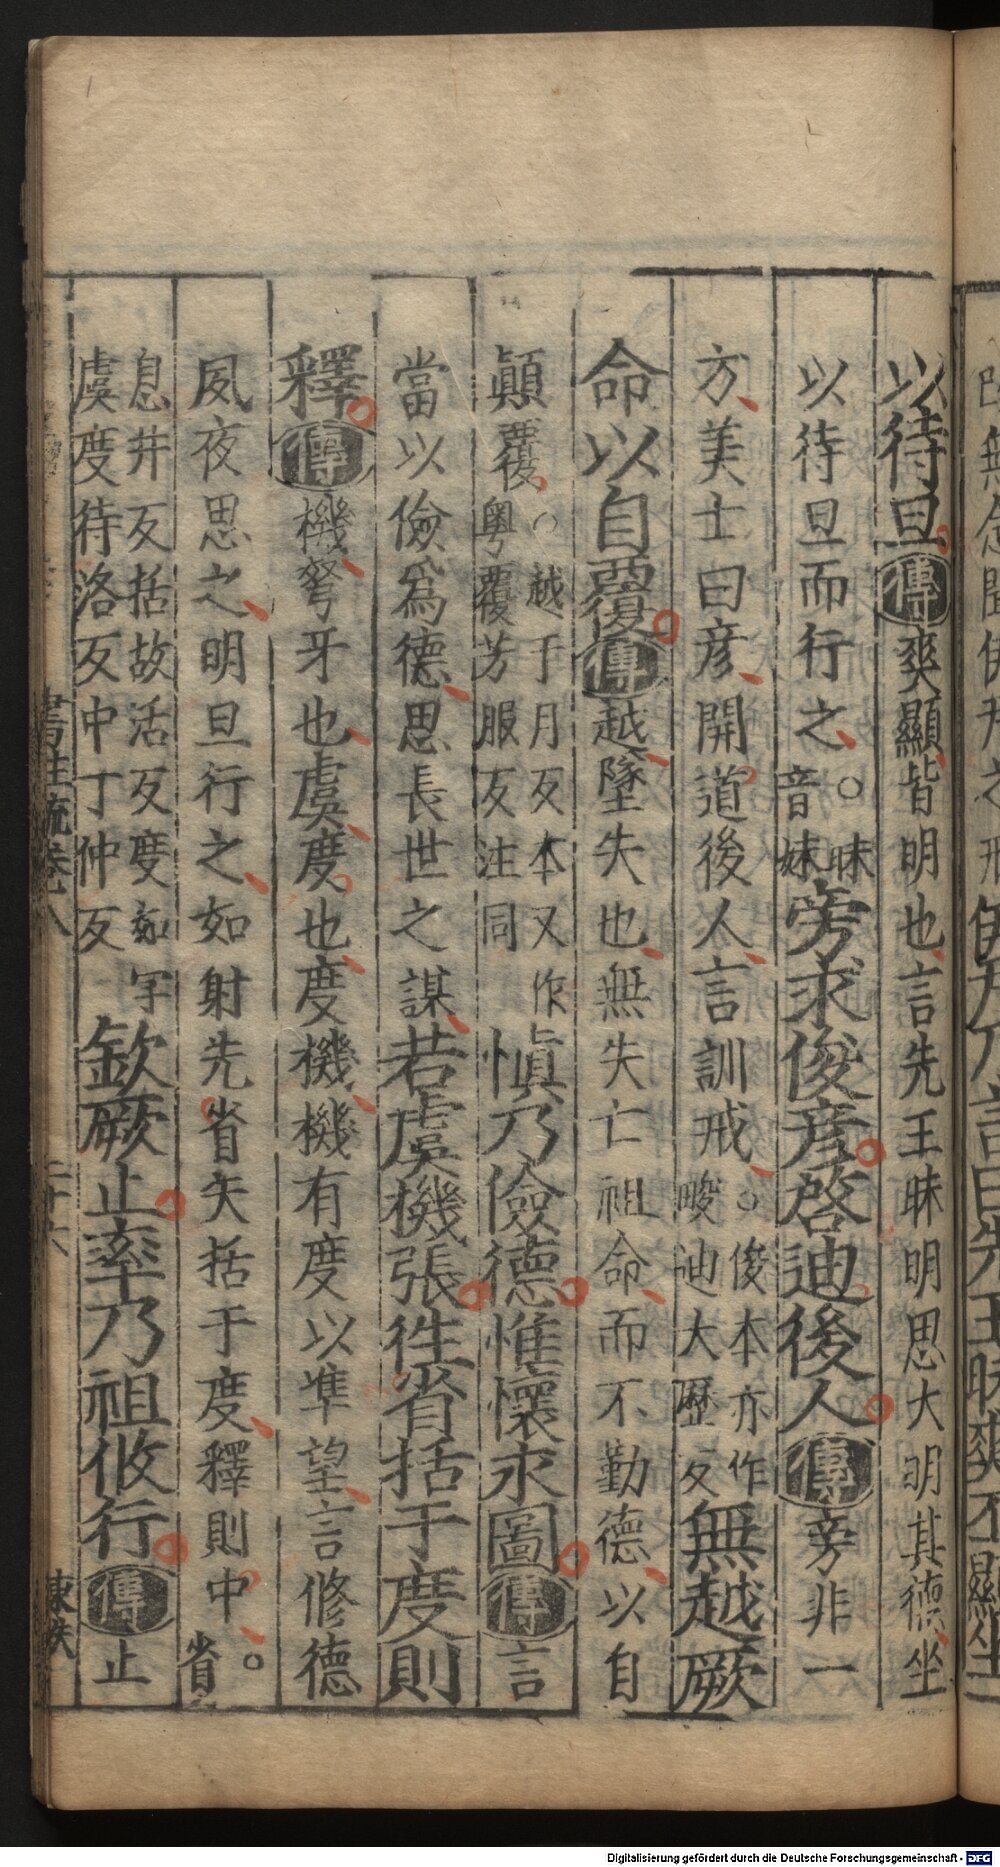 以待旦傳爽顯皆明也言先王昧明思大明其德坐
以待旦而行之○昧音妹旁求俊彥啓迪後人傳旁非一
方美士曰彥開道後人言訓戒○俊本亦作畯迪大歷反無越厥
命以自覆傳越墜失也無失亡祖命而不勤德以自
顛覆○越于月反本又作粵覆芳服反注同慎乃儉德惟懷永圖傳言
當以儉爲德思長世之謀若虞機張徃省括于度則
釋傳機弩牙也虞度也度機機有度以準望言修德
夙夜思之明旦行之如射先省矢括于度釋則中○省
息井反括故活反度如字虞度待洛反中丁仲反欽厥止率乃祖攸行傳止
書註疏卷八
二十六
伊尹乃言曰先王昧爽丕顯坐
Digitalisierung gefördert durch die Deutsche Forschungsgemeinschaft - DFG